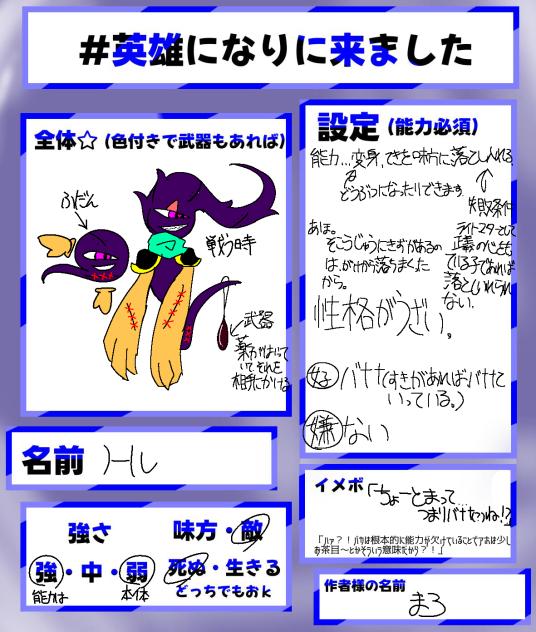 #英雄になりに来ました
全体☆(色付きで武器もあれば)
ふだん
戦う時
武器
薬がはいって
いてそれを
相手にかける
設定(能力必須)
能力…変身、てきを味方に落とし入れる
どうぶつになったりできます
失敗条件
ライトスターとして
正義の心をもっ
てる子であれば
落としいれられ
ない。
あほ。
そこらじゅうにきずがあるの
は、がけから落ちまくった
から。
性格がうざい。
好 バナナ(すきがあればバナナと
いっている。)
嫌 ない
名前 ノール
強さ
強・中・弱
能力は
本体
味方・敵
死ぬ・生きる
どっちでもおk
イメボ
「ちょーとまって…
つまりバナナだっつぅね!?
「ハァ?!バカは根本的に能力が欠けていることでアホは少し
お茶目~とかそういう意味だから?!」
作者様の名前
まろ